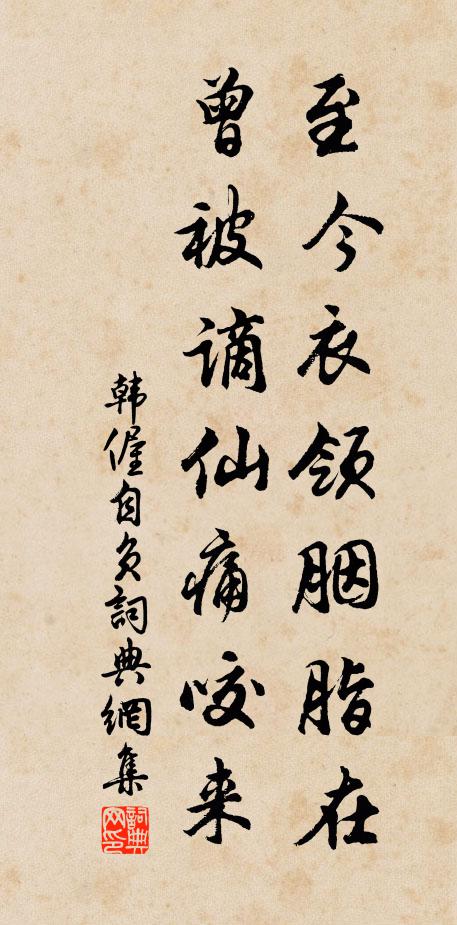 至今衣领胭脂在
曾被谪仙痛咬来
韩偓自负詞典網集
詞典网印